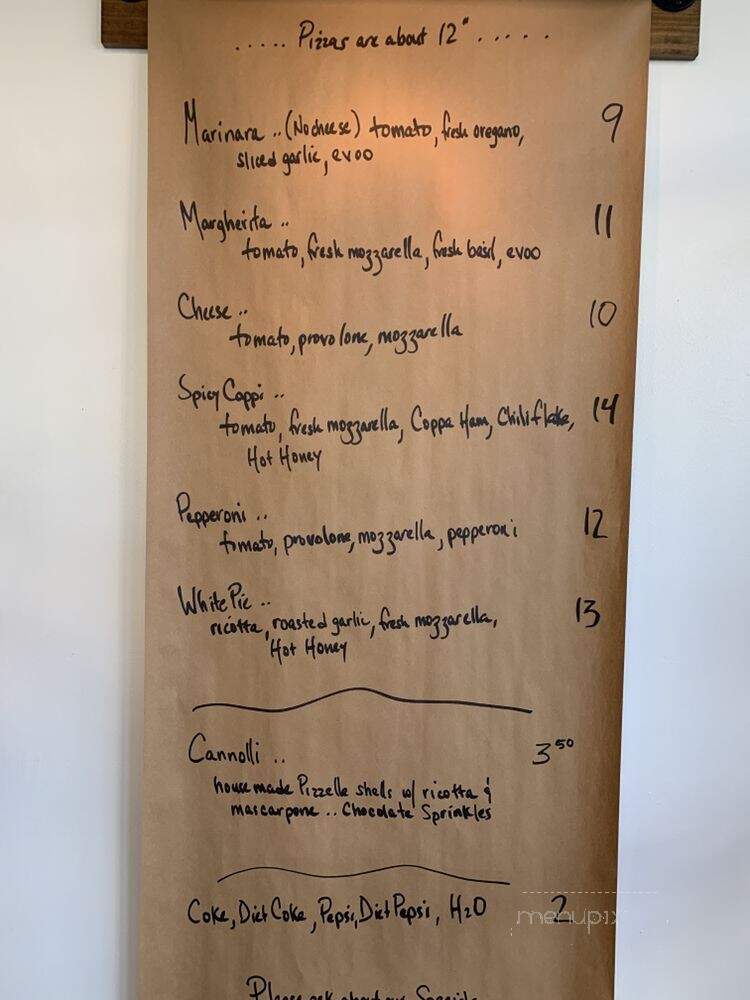 ..... Pizzas are about 12" .....
Marinara ..(No cheese) tomato, fresh oregano, 9
sliced garlic, evoo
Margherita .. 11
tomato, fresh mozzarella, fresh basil, evoo
Cheese .. 10
tomato, provolone, mozzarella
Spicy Coppi ..
tomato, fresh mozzarella, Coppa Ham, Chili flake, 14
Hot Honey
Pepperoni .. 12
tomato, provolone, mozzarella, pepperoni
White Pie .. 13
ricotta, roasted garlic, fresh mozzarella,
Hot Honey
Cannolli .. 3 50
housemade Pizzelle shells w/ ricotta &
mascarpone .. Chocolate Sprinkles
Coke, Diet Coke, Pepsi, Diet Pepsi, H2O 2
menupix
Please ask about our Specials